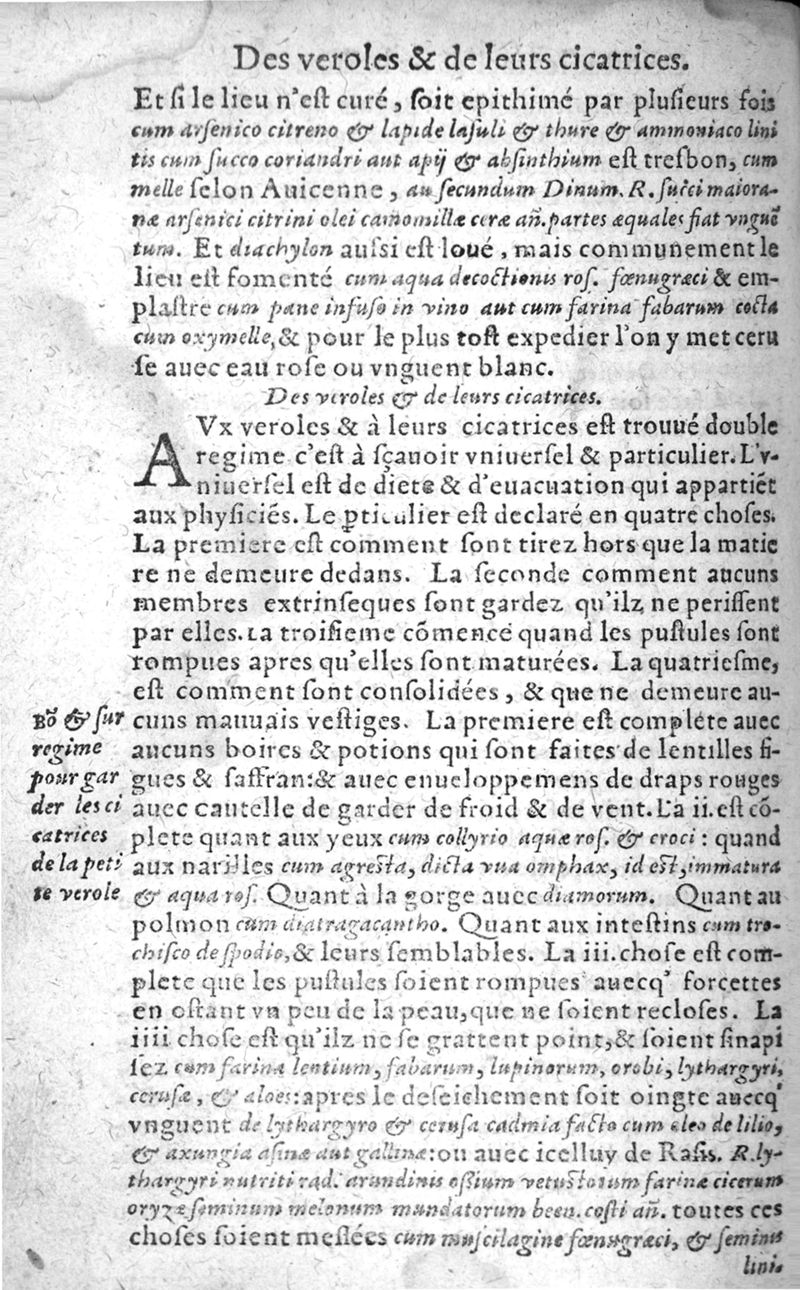 Des veroles & de leurs cicatrices.
Et si le lieu n'est curé, soit epithimé par plusieurs fois
cum arsenico citreno & lapide lasuli & thure & ammoniaco lini
tis cum succo coriandri aut apij & absinthium est tresbon, cum
melle selon Auicenne, au secundum Dinum. R. succi maiora-
næ arsenici citrini olei camomillæ ceræ añ. partes æquales fiat vnguẽ
tum. Et diachylon aussi est loué, mais communement le
lieu est fomenté cum aqua decoctionis ros. fœnugræci & em-
plastre cum pane infuso in vino aut cum farina fabarum cocta
cum oxymelle, & pour le plus tost expedier l'on y met ceru
se auec eau rose ou vnguent blanc.
Des veroles & de leurs cicatrices.
AVx veroles & à leurs cicatrices est trouué double
regime c'est à sçauoir vniuersel & particulier. L'v-
niuersel est de diete & d'euacuation qui appartiẽt
aux physiciẽs. Le pticulier est declaré en quatre choses.
La premiere est comment sont tirez hors que la matie
re ne demeure dedans. La seconde comment aucuns
membres extrinseques sont gardez qu'ilz ne perissent
par elles. La troisieme cõmence quand les pustules sont
rompues apres qu'elles sont maturées. La quatriesme,
est comment sont consolidées, & que ne demeure au-
cuns mauuais vestiges. La premiere est complete auec
aucuns boires & potions qui sont faites de lentilles fi-
gues & saffran: & auec enueloppemens de draps rouges
auec cautelle de garder de froid & de vent. La ii. est cõ-
plete quant aux yeux cum collyrio aquæ ros. & croci: quand
aux narilles cum agresta, dicta vua omphax, id est, immatura
& aqua ros. Quant à la gorge auec diamorum. Quant au
polmon cum diatragacantho. Quant aux intestins cum tro-
chisco de spodio, & leurs semblables. La iii. chose est com-
plete que les pustules soient rompues auecq' forcettes
en ostant vn peu de la peau, que ne soient recloses. La
iiii chose est qu'ilz ne se grattent point, & soient sinapi
sez cum farina lentium, fabarum, lupinorum, orobi, lythargyri,
cerusæ, & aloes: apres le deseichement soit oingte auecq'
vnguent de lythargyro & cerusa cadmia facto cum oleo de lilio,
& axungia asinæ aut gallinæ: ou auec icelluy de Rasis. R. ly-
thargyri nutriti rad. arundinis ossium vetustorum farinæ cicerum
oryzæ seminum melonum mundatorum been. costi añ. toutes ces
choses soient meslées cum muscilagine fœnugræci, & seminis
lini.
Bõ & sur
regime
pour gar
der les ci
catrices
de la peti
te verole